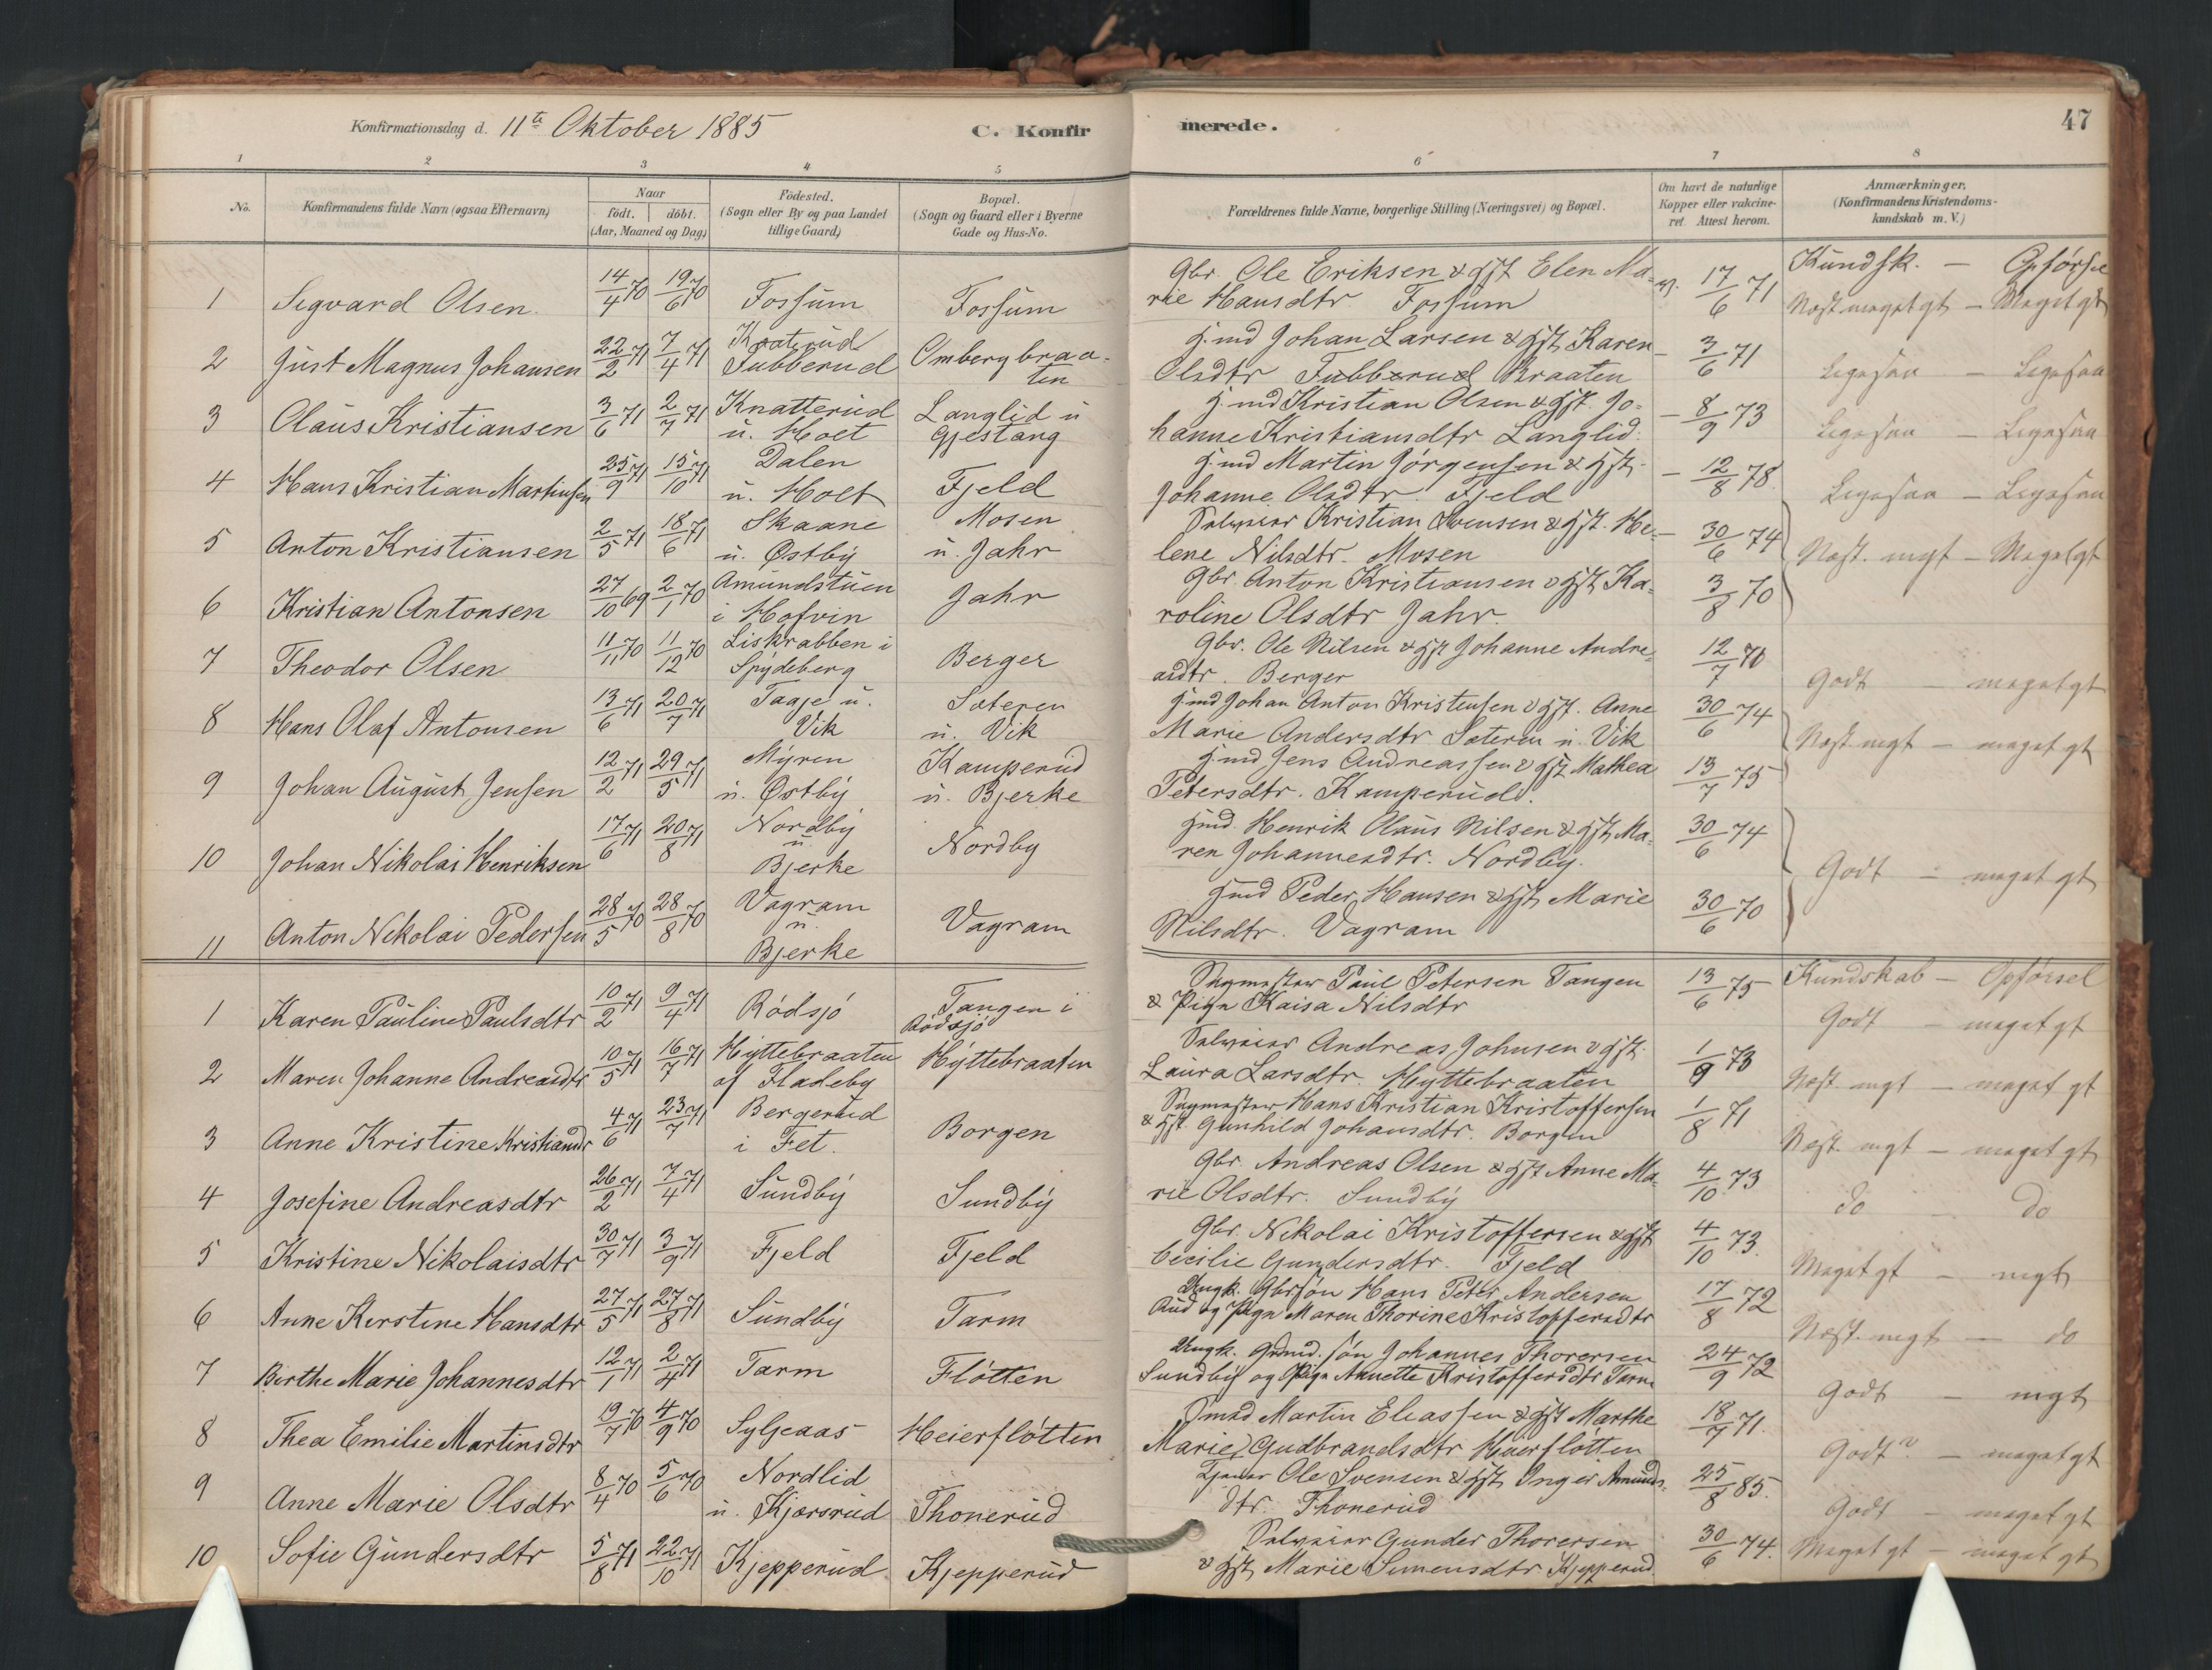 Konfirmationsdag d. 11te Oktober 1885 C. Konfirmerede. 47
1 2 3 4 5 6 7 8
No. Konfirmandens fulde Navn (ogsaa Efternavn) Naar født. døbt. (Aar, Maaned og Dag) Fødested. (Sogn eller By og paa Landet tillige Gaard) Bopæl. (Sogn og Gaard eller i Byerne Gade og Hus-No. Forældrenes fulde Navne, borgerlige Stilling (Næringsvei) og Bopæl. Om havt de naturlige Kopper eller vakcineret. Attest herom. Anmærkninger, (Konfirmandens Kristendomskundskab m. V.)
Kundsk. — Opførsel
1 Sigvard Olsen. 14/4 70 19/6 70 Fossum Fossum Gbr. Ole Eriksen & Hst Elen Marie Hansdtr Fossum v. 17/6 71 Næst. meget gt — Meget gt
2 Just Magnus Johansen 22/2 71 7/4 71 Kraterud Fubberud Ombergbraaten H.md Johan Larsen & Hst. Karen Olsdtr Fubberud Braaten — 3/6 71 Ligesaa — Ligesaa
3 Olaus Kristiansen 3/6 71 2/7 71 Knatterud u. Holt Langlid u Gjestang H.md Kristian Olsen & Hst. Johanne Kristiansdtr Langlid. — 8/9 73 Ligesaa — Ligesaa
4 Hans Kristian Martinsen 25/9 71 15/10 71 Dalen u. Holt Fjeld H.md Martin Jørgensen & Hst. Johanne Olsdtr. Fjeld — 12/8 78. Ligesaa — Ligesaa
5 Anton Kristiansen 2/5 71 18/6 71 Skaane u. Østby Mosen u. Jahr Selveier Kristian Svensen & Hst. Helene Nilsdtr. Mosen — 30/6 74 Næst. mgt — Meget gt
6 Kristian Antonsen 27/10 69 2/1 70 Amundstuen i Hofvin Jahr Gbr. Anton Kristiansen & Hst. Karoline Olsdtr Jahr. 3/8 70
7 Theodor Olsen 11/11 70 11/12 70 Liskrabben i Spydeberg Berger Gbr. Ole Nilsen & Hst Johanne Andreasdtr. Berger 12/7 78 Godt — meget gt
8 Hans Olaf Antonsen 13/6 71 20/7 71 Taaje u. Vik Sæteren u. Vik H.md Johan Anton Kristensen & Hst. Anne Marie Andersdtr Sæteren u. Vik 30/6 74 Næst. mgt — meget gt
9 Johan August Jensen 12/2 71 29/5 71 Myren u. Østby Kamperud u. Bjerke H.md Jens Andreassen & Hst Mathea Petersdtr. Kamperud. 13/7 75
10 Johan Nikolai Henriksen 17/6 71 20/8 71 Nordby u. Bjerke Nordby Hmd. Henrik Olaus Nilsen & Hst, Maren Johannesdtr. Nordby. 30/6 74 Godt — meget gt
11 Anton Nikolai Pedersen 28/5 70 28/8 70 Vagram u. Bjerke Vagram Hmd Peder Hansen & Hst. Marie Nilsdtr. Vagram 30/6 70
Kundskab — Opførsel
1 Karen Pauline Paulsdtr 10/2 71 9/4 71 Rødsjø Tangen i Rødsjø Sagmester Paul Petersen Tangen & Pige Kaisa Nilsdtr 13/6 75 Godt — meget gt
2 Maren Johanne Andreasdtr 10/5 71 16/7 71 Hyttebraaten af Fladeby Hyttebraaten Selveier Andreas Johnsen & Hst. Laura Larsdtr. Hyttebraaten 1/9 73 Næst. mgt — meget gt
3 Anne Kristine Kristiansdr 4/6 71 23/7 71 Bergerud i Fet. Borgen Sagmester Hans Kristian Kristoffersen & Hst. Gunhild Johansdtr. Borgen 1/8 71 Næst. mgt — meget gt
4 Josefine Andreasdtr 26/2 71 7/4 71 Sundby Sundby Gbr. Andreas Olsen & Hst Anne Marie Olsdtr. Sundby 4/10 73 do — do
5 Kristine Nikolaisdtr 30/7 71 3/9 71 Fjeld Fjeld Gbr. Nikolai Kristoffersen & Hst Cecilie Gundersdtr. Fjeld 4/10 73. Meget gt — mgt
6 Anne Kerstine Hansdtr 27/5 71 27/8 71 Sundby Tarm Ungk. Gbrsøn Hans Peter Andersen Aud og Pige Maren Thorine Kristoffersdtr 17/8 72 Næst. mgt — do
7 Berthe Marie Johannesdtr 12/1 71 2/4 71 Tarm Fløtten Ungk. Grdmd. søn Johannes Thorersen Sundby og Pige Annette Kristoffersdtr Tarm 24/9 72 Godt — mgt
8 Thea Emilie Martinsdtr 19/7 70 4/9 70 Syljeaas Heierfløtten Smed Martin Eliassen & Hst Marthe Marie Gudbrandsdtr Heierfløtten 18/7 71. Godt — meget gt
9 Anne Marie Olsdtr 8/4 70 5/6 70 Nordlid u. Kjørsrud Thonerud Tjener Ole Svensen & Hst Inger Amundsdtr. Thonerud 25/8 85. Godt — meget gt
10 Sofie Gundersdtr 5/8 71 22/10 71 Kjepperud Kjepperud Selveier Gunder Thorersen & Hst. Marie Simensdtr Kjepperud 30/6 74. Meget gt — meget gt